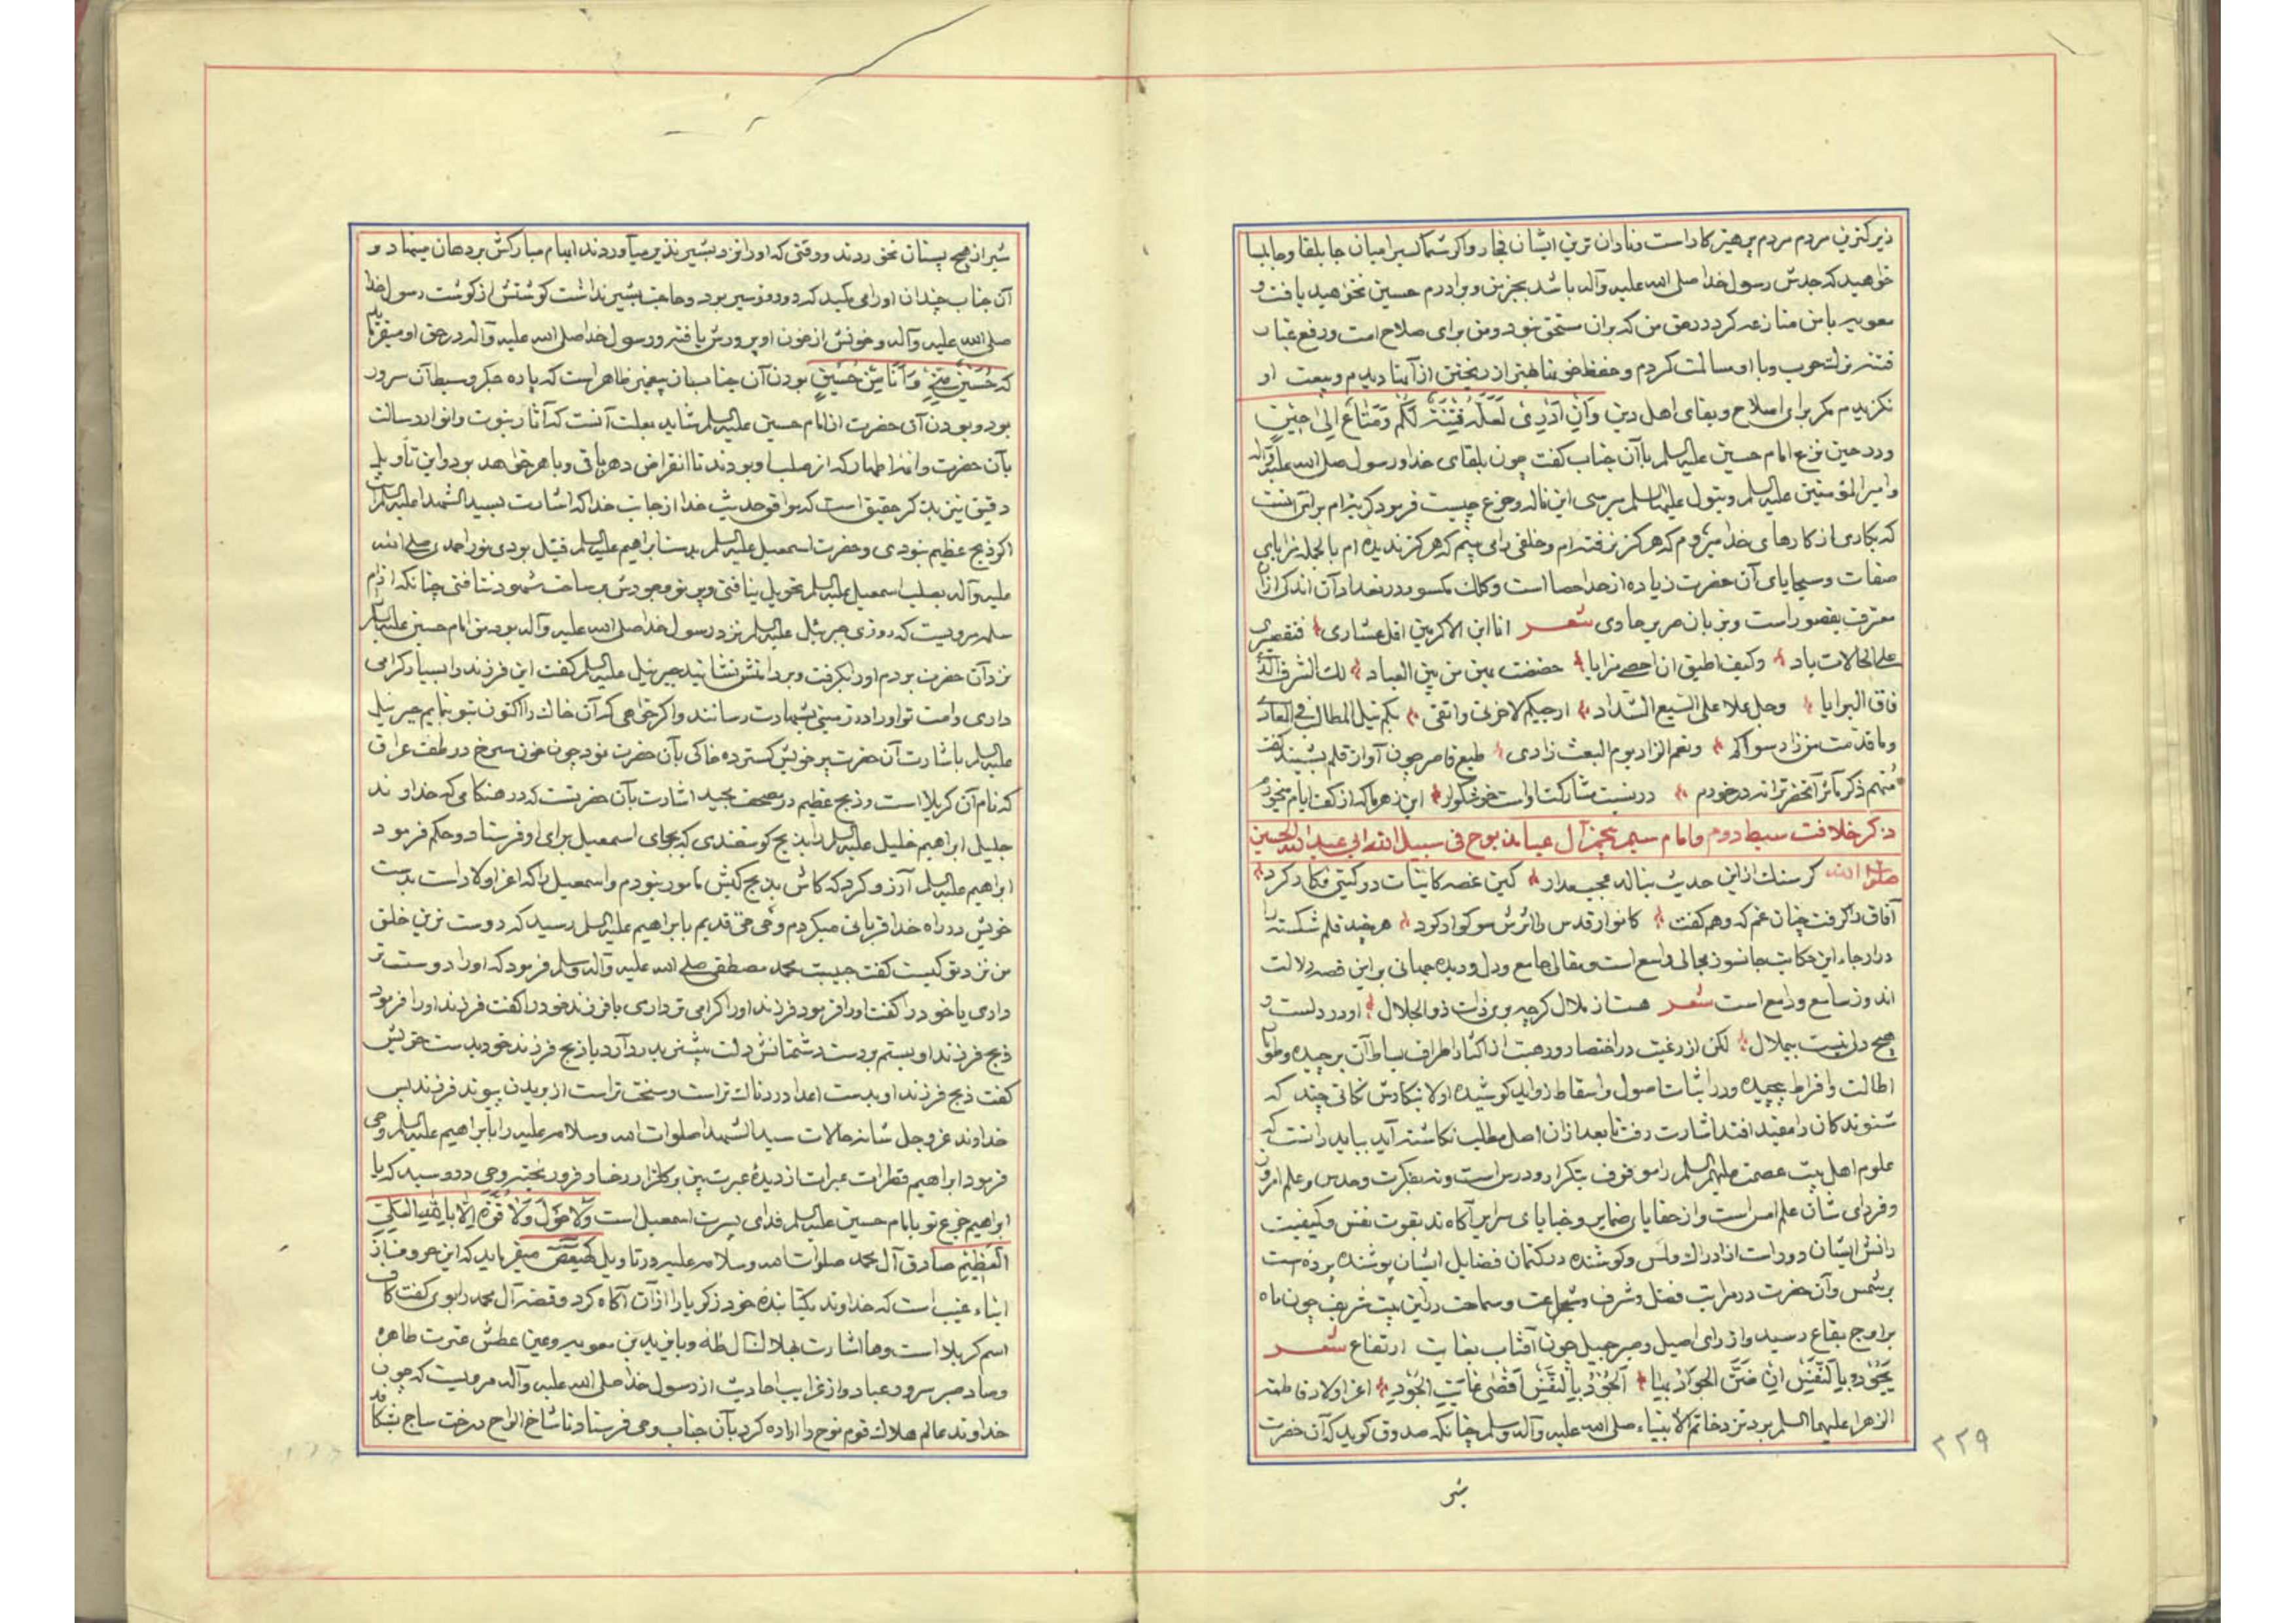 زیرکترین مردم مردم پرهیزکار است و نادان ترین ایشان فجار و اگر شما کسیرا میان جابلقا و جابلسا
خواهید که جدش رسول خدا صلی الله علیه وآله باشد بجز من و برادرم حسین نخواهید یافت و
معویه با من منازعه کرد در حق من که بران مستحق نبود و من برای صلاح امت و رفع
فتنه ترک حرب و با او مسالمت کردم و حفظ خونها بهتر از ریختن از آنها دیدم و بیعت او
نگزیدم مگر برای اصلاح و بقای اهل دین وَاِن اَدری لَعَلَّهُ فِتنَةٌ لَکُم وَمَتاعٌ اِلی حینٍ
و در حین نزع امام حسین علیه السلم باآن جناب گفت چون بلقای خدا و رسول صلی الله علیه وآله
و امیر المؤمنین علیه السلم و بتول علیها السلم میرسی این ناله و جزع چیست فرمود گریه ام برای آنست
که بکاری از کارهای خدا میروم که هرگز نرفته ام و خلقی را می بینم که هرگز ندیده ام بالجمله مزایای
صفات و سجایای آن حضرت زیاده از حد احصا است و کلک مکسور در تعداد آن اندکی ازان
معترف بقصور است و بزبان حریر حاوی شعر انا ابن الاکرمین اقل عثاری فتقصیری
علی الحالات باد وکیف اطیق ان احصی مزایا خصصت بهن من بین العباد لک الشرف الذی
فاق البرایا وجل علا علی السبع الشداد ارجیکم لاخرتی واتقی بکم نیل المطالب فی المعاد
وما قدّمت من زاد سواکم ونعم الزاد یوم البعث زادی طبع قاصر چون آواز قلم بشنید گفت
منهم ذکر مآثر آنحضر ترا نه در خودم در نسبت مشارکت او است خوشگوار این زهر ها که از کف ایام میخورم
ذکر خلافت سبط دوم و امام سیم پنجم آل عبا مذبوح فی سبیل الله ابی عبد الله الحسین
صلوات الله گر سنگ ازین حدیث بنالد عجب مدار کین غصه کاینات در گیتی فکار کرد
آفاق را گرفت چنان غم که وهم گفت کانوار قدس را اثرش سوگوار کرد هر چند قلم شکسته را
در ارجاء این حکایت جانسوز مجالی واسع است و مقالی جامع و دل و دیده جهانی بر این قصه دلالت
اندوز سامع و دامع است شعر هست از ملال گرچه بری ذات ذو الجلال او در دلست و
هیچ دلی نیست بیملال لکن از رغبت در اختصار و رهبت از اکثار اطراف بساط آن برچیده و طومار
اطالت و افراط پیچیده و در اثبات اصول و اسقاط زواید کوشیده اولا بنگارش نکاتی چند که
شنوندگان را مفید افتد اشارت رفت تا بعد ازان اصل مطلب نگاشته آید بباید دانست که
علوم اهل بیت عصمت علیهم السلم را موقوف بتکرار و درس است و نه بفکرت و حدس و علم امروز
و فردای شان علم امس است و از خفایای ضمایر و خبایای سرایر آگاه ند بقوت نفس و کیفیت
دانش ایشان دور است از ادراک و لمس و کوشنده در کتمان فضایل ایشان پوشنده پرده است
بر شمس و آن حضرت در مراتب فضل و شرف و شجاعت و سماحت در این بیت شریف چون ماه
بر اوج بقاع رسید و از رای اصیل و صبر جمیل چون آفتاب بغایت ارتفاع شعر
یَجُودُ بِالنَّفسِ اِن ضَنَّ الجَوادُ بِها اَلجُودُ بِالنَّفسِ اَقصی غایَةِ الجُودِ اعز اولاد فاطمه
الزهرا علیهما السلم بود نزد خاتم الانبیاء صلی الله علیه وآله وسلم چنانکه صدوق گوید که آن حضرت
شیر
۲۲۹
شیر از هیچ پستان نخوردند و وقتی که اورا نزد بشیر نذیر میآوردند ابهام مبارکش بر دهان مینهاد و
آن جناب چندان اورا می مکید که دو روز سیر بود و حاجت بشیر نداشت گوشتش از گوشت رسول خدا
صلی الله علیه وآله و خونش از خون او پرورش یافته و رسول خدا صلی الله علیه وآله در حق او میفرماید
که حُسَینٌ مِنّی وَ اَنَا مِن حُسَینٍ بودن آن جناب از پیغمبر ظاهر است که پاره جگر و سبط آن سرور
بود و بودن آن حضرت از امام حسین علیه السلم شاید بعلت آنست که آثار نبوت و انوار رسالت
بآن حضرت و ائمه اطهار که از صلب او بودند تا انقراض دهر باقی و باهر خواهد بود و این تأویل
دقیق نیز بذکر حقیق است که موافق حدیث خدا از جانب خدا که اشارت بسید الشهدا علیه السلم است
اگر ذبح عظیم نبودی و حضرت اسمعیل علیه السلم بدست ابراهیم علیه السلم قتیل بودی نور احمدی صلی الله
علیه وآله بصلب اسمعیل علیه السلم تحویل نیافتی و پرتو وجودش بر ساحت شهود نتافتی چنانکه از ام
سلمه مرویست که روزی جبرئیل علیه السلم نزد رسول خدا صلی الله علیه وآله بود من امام حسین علیه السلم
نزد آن حضرت بردم اورا بگرفت و بر دامنش نشانید جبرئیل علیه السلم گفت این فرزند را بسیار گرامی
داری و امت تو اورا در زمینی بشهادت رسانند و اگر خواهی که آن خاک را اکنون بتو بنمایم جبرئیل
علیه السلم باشارت آن حضرت پر خویش گسترده خاکی بآن حضرت نمود چون خون سرخ در طف عراق
که نام آن کربلا است و ذبح عظیم در مصحف مجید اشارت بآن حضرتست که در هنگامی که خداوند
جلیل ابراهیم خلیل علیه السلم را بذبح گوسفندی که بجای اسمعیل برای او فرستاد و حکم فرمود
ابراهیم علیه السلم آرزو کرد که کاش بذبح کبش مامور نبودم و اسمعیل را که اعز اولاد است بدست
خویش در راه خدا قربانی میکردم وحی حی قدیم بابراهیم علیه السلم رسید که دوست ترین خلق
من نزد تو کیست گفت حبیبت محمد مصطفی صلی الله علیه وآله وسلم فرمود که اورا دوست تر
داری یا خود را گفت اورا فرمود فرزند اورا گرامی تر داری یا فرزند خود را گفت فرزند اورا فرمود
ذبح فرزند او بستم بر دست دشمنانش دلت بیشتر بدرد آرد یا ذبح فرزند خود بدست خویش
گفت ذبح فرزند او بدست اعدا دردناک تر است و سخت تر است از بریدن پیوند فرزند پس
خداوند عز وجل شانه حالات سید الشهدا صلوات الله وسلامه علیه را بابراهیم علیه السلم وحی
فرمود ابراهیم قطرات عبرات از دیدهٔ عبرت بین بر گلزار رخسار فرو ریخته وحی در رسید که یا
ابراهیم جزع تو بامام حسین علیه السلم فدای پسرت اسمعیل است وَلا حَولَ وَلا قُوَّةَ اِلّا بِاللهِ العَلیِّ
العَظیمِ صادق آل محمد صلوات الله وسلامه علیه در تاویل کهیعص میفرماید که این حروف از
انباء غیب است که خداوند یکتا بنده خود زکریا را از آن آگاه کرد و قصه آل محمد را بوی گفت کاف
اسم کربلا است و ها اشارت بهلاک آل طه و یا یزید بن معویه و عین عطش عترت طاهره
و صاد صبر سرور عباد و از غرایب احادیث از رسول خدا صلی الله علیه وآله مرویست که چون
خداوند عالم هلاک قوم نوح را اراده کرد بآن جناب وحی فرستاد تا شاخ الواح درخت ساج بشکافد